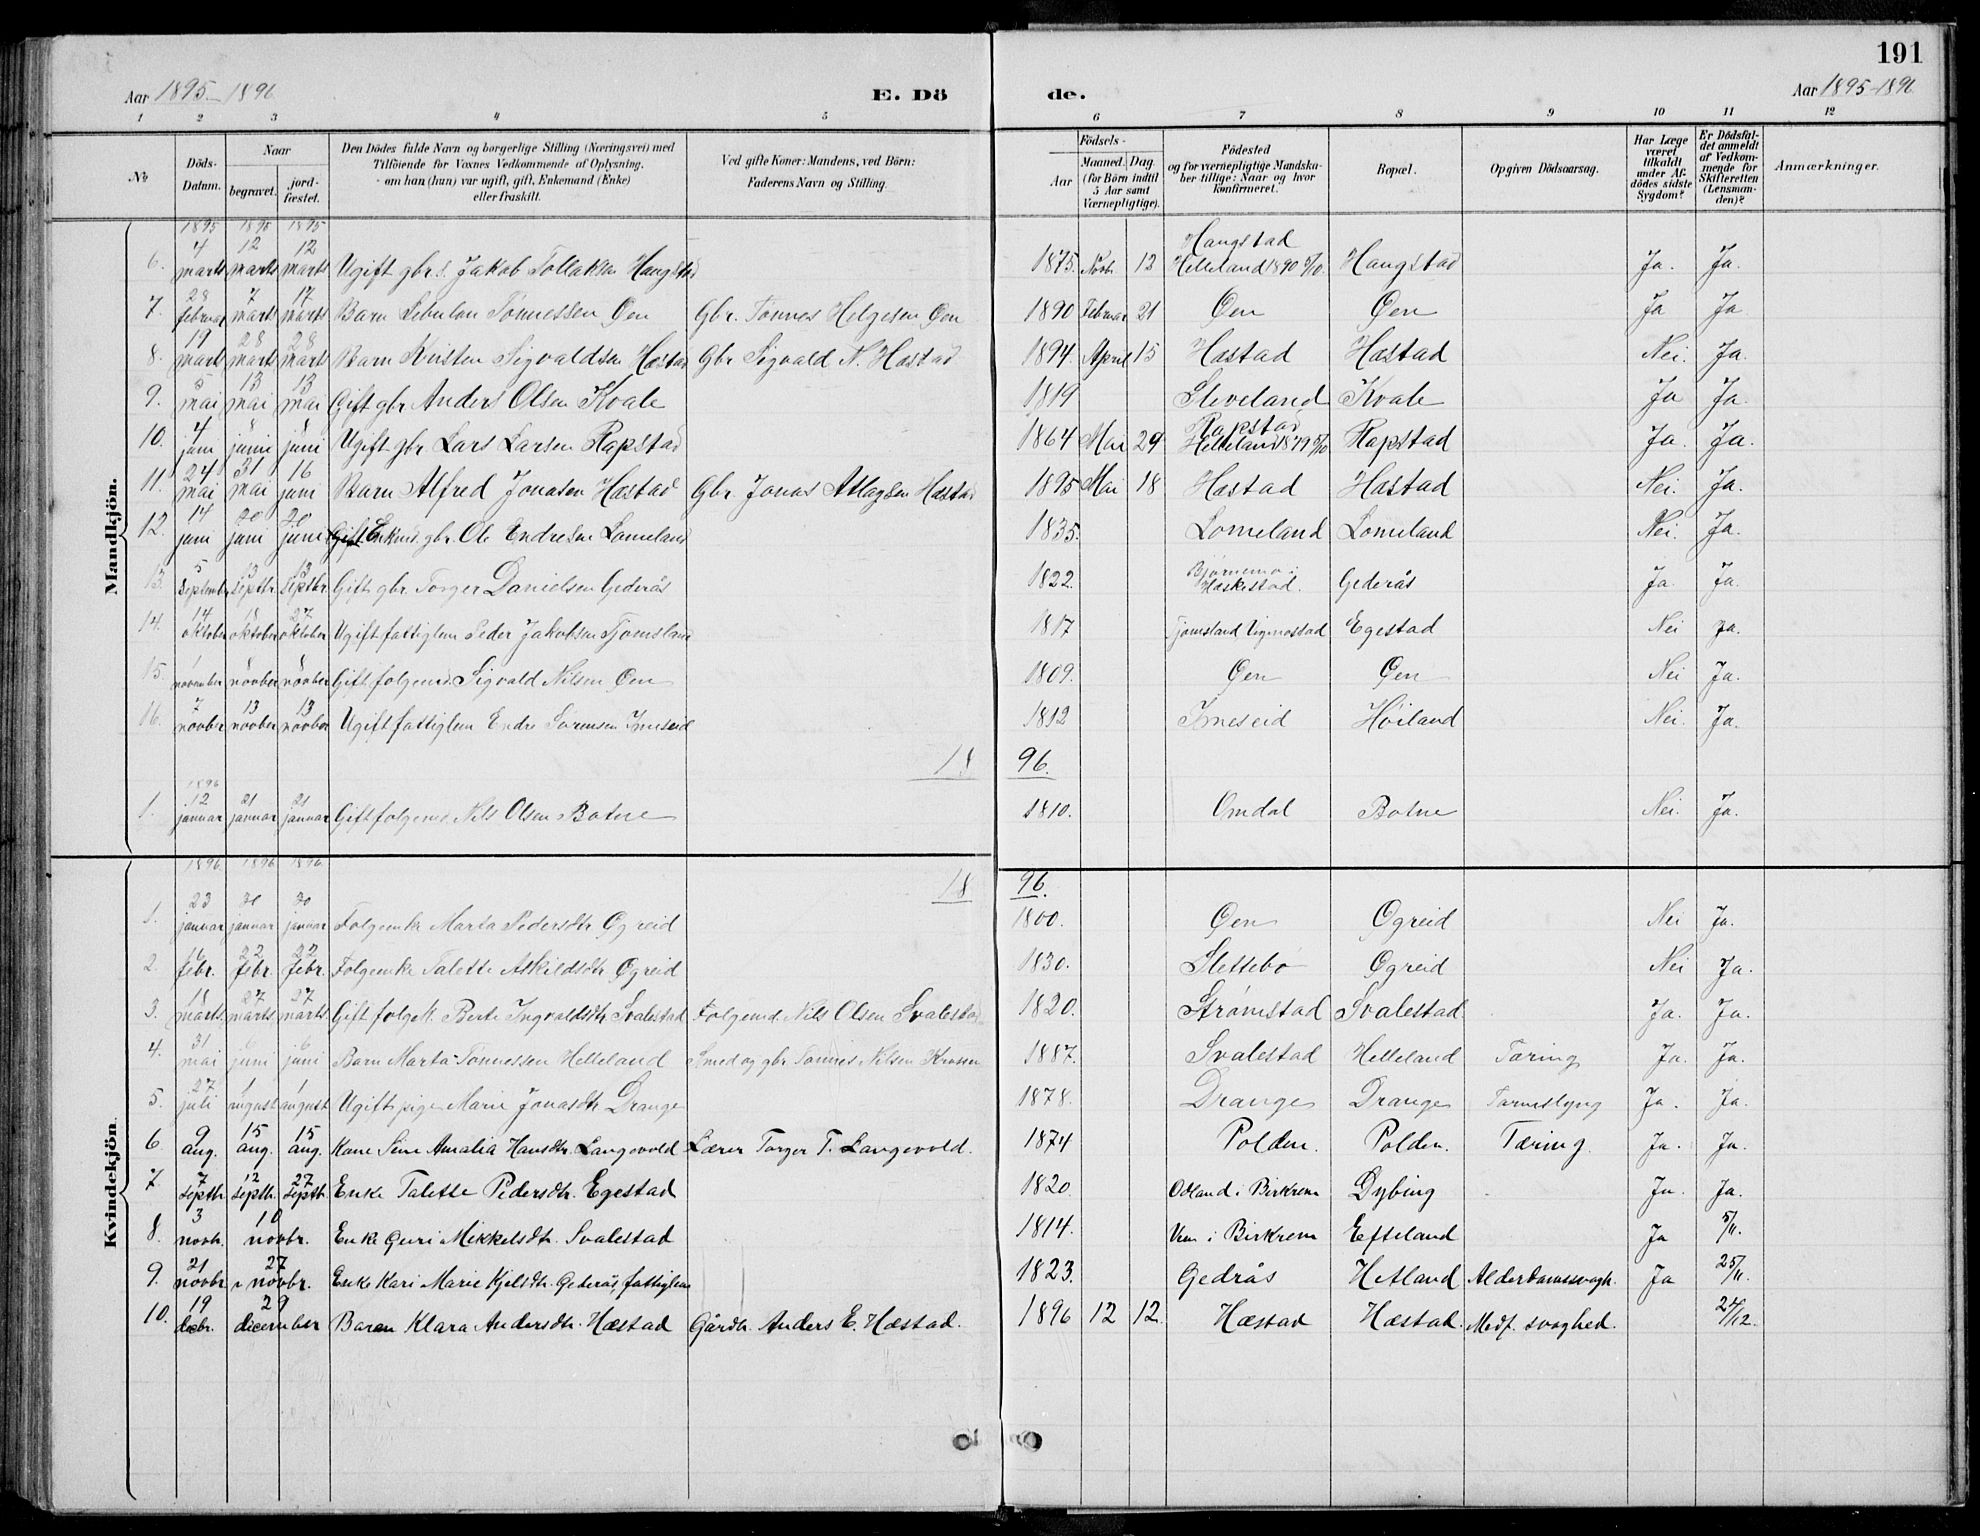 191
Aar 1895-1896
E. Dö de.
Aar 1895-1896
1 2 3 4 5 6 7 8 9 10 11 12
No
Döds-Datum.
Naar
begravet. jordfæstet.
Den Dödes fulde Navn og borgerlige Stilling (Næringsvei) med
Tilföiende for Voxnes Vedkommende af Oplysning,
om han (hun) var ugift, gift, Enkemand (Enke)
eller fraskilt.
Ved gifte Koner: Mandens, ved Börn:
Faderens Navn og Stilling.
Födsels-
Aar Maaned. Dag.
(for Börn indtil
5 Aar samt
Værnepligtige).
Födested
og for værnepligtige Mandskaber tillige: Naar og hvor
konfirmeret.
Bopæl.
Opgiven Dödsaarsag.
Har Læge
været
tilkaldt
under Afdödes sidste
Sygdom?
Er Dödsfaldet anmeldt
af Vedkommende for
Skifteretten
(Lensmanden)?
Anmærkninger.
Mandkjön.
1895 1895 1895
6. 4 marts 12 marts 12 marts Ugift gbr.s. Jakob Tollaksen Hangstad 1875. Novb. 13 Hangstad Helleland 1890 5/10. Hangstad Ja. Ja.
7. 28 februar 7 marts 17 marts Barn Sebulon Tønnessen Øen Gbr. Tønnes Helgesen Øen 1890 Februar 21 Øen Øen Ja Ja
8. 19 marts 28 marts 28 marts Barn Kristen Sigvaldsen Hæstad Gbr Sigvald N. Hæstad 1894. April 15 Hæstad Hæstad Nei. Ja.
9. 5 mai 13 mai 13 mai Gift gbr Anders Olsen Kvale 1819 Sleveland Kvale Ja Ja.
10. 4 juni 8 juni 8 juni Ugift gbr Lars Larsen Rapstad 1864 Mai 29 Rapstad Helleland 1879 5/10 Rapstad Ja. Ja.
11. 24 mai 31 mai 16 juni Barn Alfred Jonasen Hæstad Gbr Jonas Atlagsen Hæstad 1895 Mai 18 Hæstad Hæstad Nei. Ja.
12. 14 juni 20 juni 20 juni Gift Enkmd. gbr. Ole Endresen Lomeland 1835. Lomeland Lomeland Nei. Ja.
13. 5 september 13 septbr. 13 septbr. Gift gbr Torger Danielsen Gederås 1822. Bjørnemo i Heskestad. Gederås Ja. Ja.
14. 14 oktober 18 oktober 27 oktober Ugift fattiglem Peder Jakobsen Tjomsland 1817 Tjomsland Vigmostad Egestad Nei Ja.
15. 1 november 8 novber 8 novber Gift folgemd. Sigvald Nilsen Øen 1809. Øen Øen Nei Ja.
16. 7 novbr 13 novber 13 novber Ugift fattiglem Endre Sørensen Imeseid 1812 Imeseid Høiland Nei. Ja.
18 96.
1896
1. 12 januar 21 januar 21 januar Gift folgemd Nils Olsen Botne 1810. Omdal Botne Nei. Ja.
Kvindekjön.
1896 1896 1896
18 96.
1. 23 januar 30 januar 30 januar Folgeenke Marta Pedersdtr Øgreid 1800. Øen Øgreid Nei Ja.
2. 16 febr. 22 febr. 22 febr. Folgeenke Talette Askildsdtr Øgreid 1830. Slettebø Øgreid Nei Ja.
3. 18 marts. 27 marts 27 marts. Gift folgek. Berte Ingvaldsdtr Svalestad Folgemd. Nils Olsen Svalestad 1820. Strømstad Svalestad Ja. Ja.
4. 31 mai 6 juni 6 juni Barn Marta Tønnessen Helleland Smed og gbr Tønnes Nilsen Krossen 1887. Svalestad Helleland Tæring Ja. Ja.
5. 27 juli 1 august 1 august Ugift pige Marie Jonasdtr Drange 1878. Drange Drange Tarmslyng Ja. Ja.
6. 9 aug. 15 aug. 15 aug. Kone Sine Amalia Hansdtr. Langevold Lærer Torger T. Langevold. 1874 Polden. Polden. Tæring. Ja. Ja.
7 7 septb. 12 septb. 27 septb. Enke Talette Pedersdtr. Egestad 1820. Odland i Birkrem Dybing Ja. Ja.
8. 3 novb. 10 novbr. Enke Guri Mikkelsdtr. Svalestad 1814. Vem i Birkrem Efteland Ja 5/11.
9. 21 novbr. 27 novbr. Enke Kari Marie Kjelsdtr. Gederås, fattiglem 1823. Gedrås Hetland Alderdomssvagh. Ja 25/11.
10. 19 decbr. 29 december Baren Klara Andersdtr. Hæstad Gårdbr. Anders E. Hæstad. 1896 12 12. Hæstad Hæstad. Medf. svaghed. 24/12.